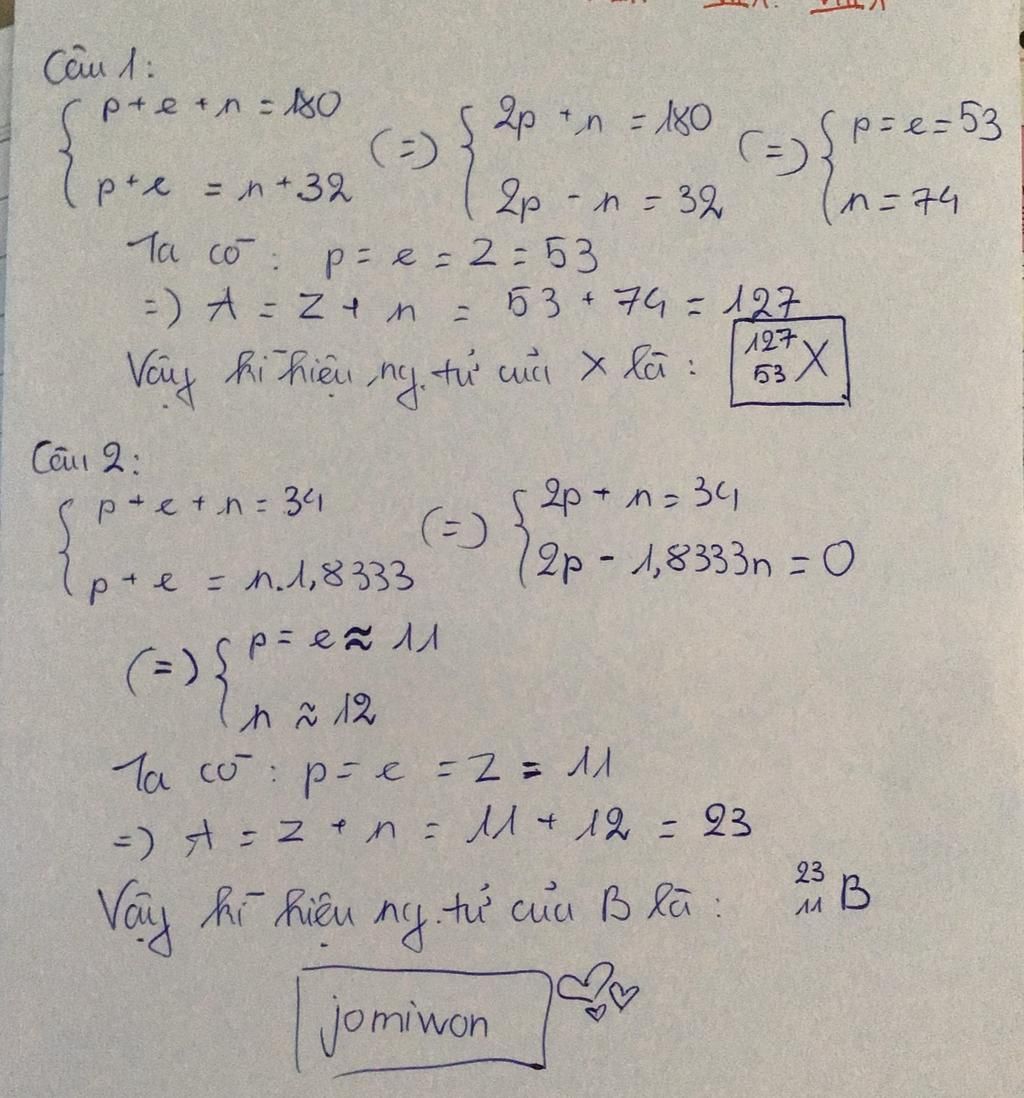 Câu 1:
{ p + e + n = 180 (=) { 2p + n = 180 (=) { p = e = 53
p + e = n + 32 2p - n = 32 n = 74
Ta có: p = e = Z = 53
=) A = Z + n = 53 + 74 = 127
Vậy kí hiệu ng.tử của X là: ¹²⁷₅₃X
Câu 2:
{ p + e + n = 34 (=) { 2p + n = 34
p + e = n.1,8333 2p - 1,8333n = 0
(=) { p = e ≈ 11
n ≈ 12
Ta có: p = e = Z = 11
=) A = Z + n = 11 + 12 = 23
Vậy kí hiệu ng.tử của B là: ²³₁₁B
jomiwon